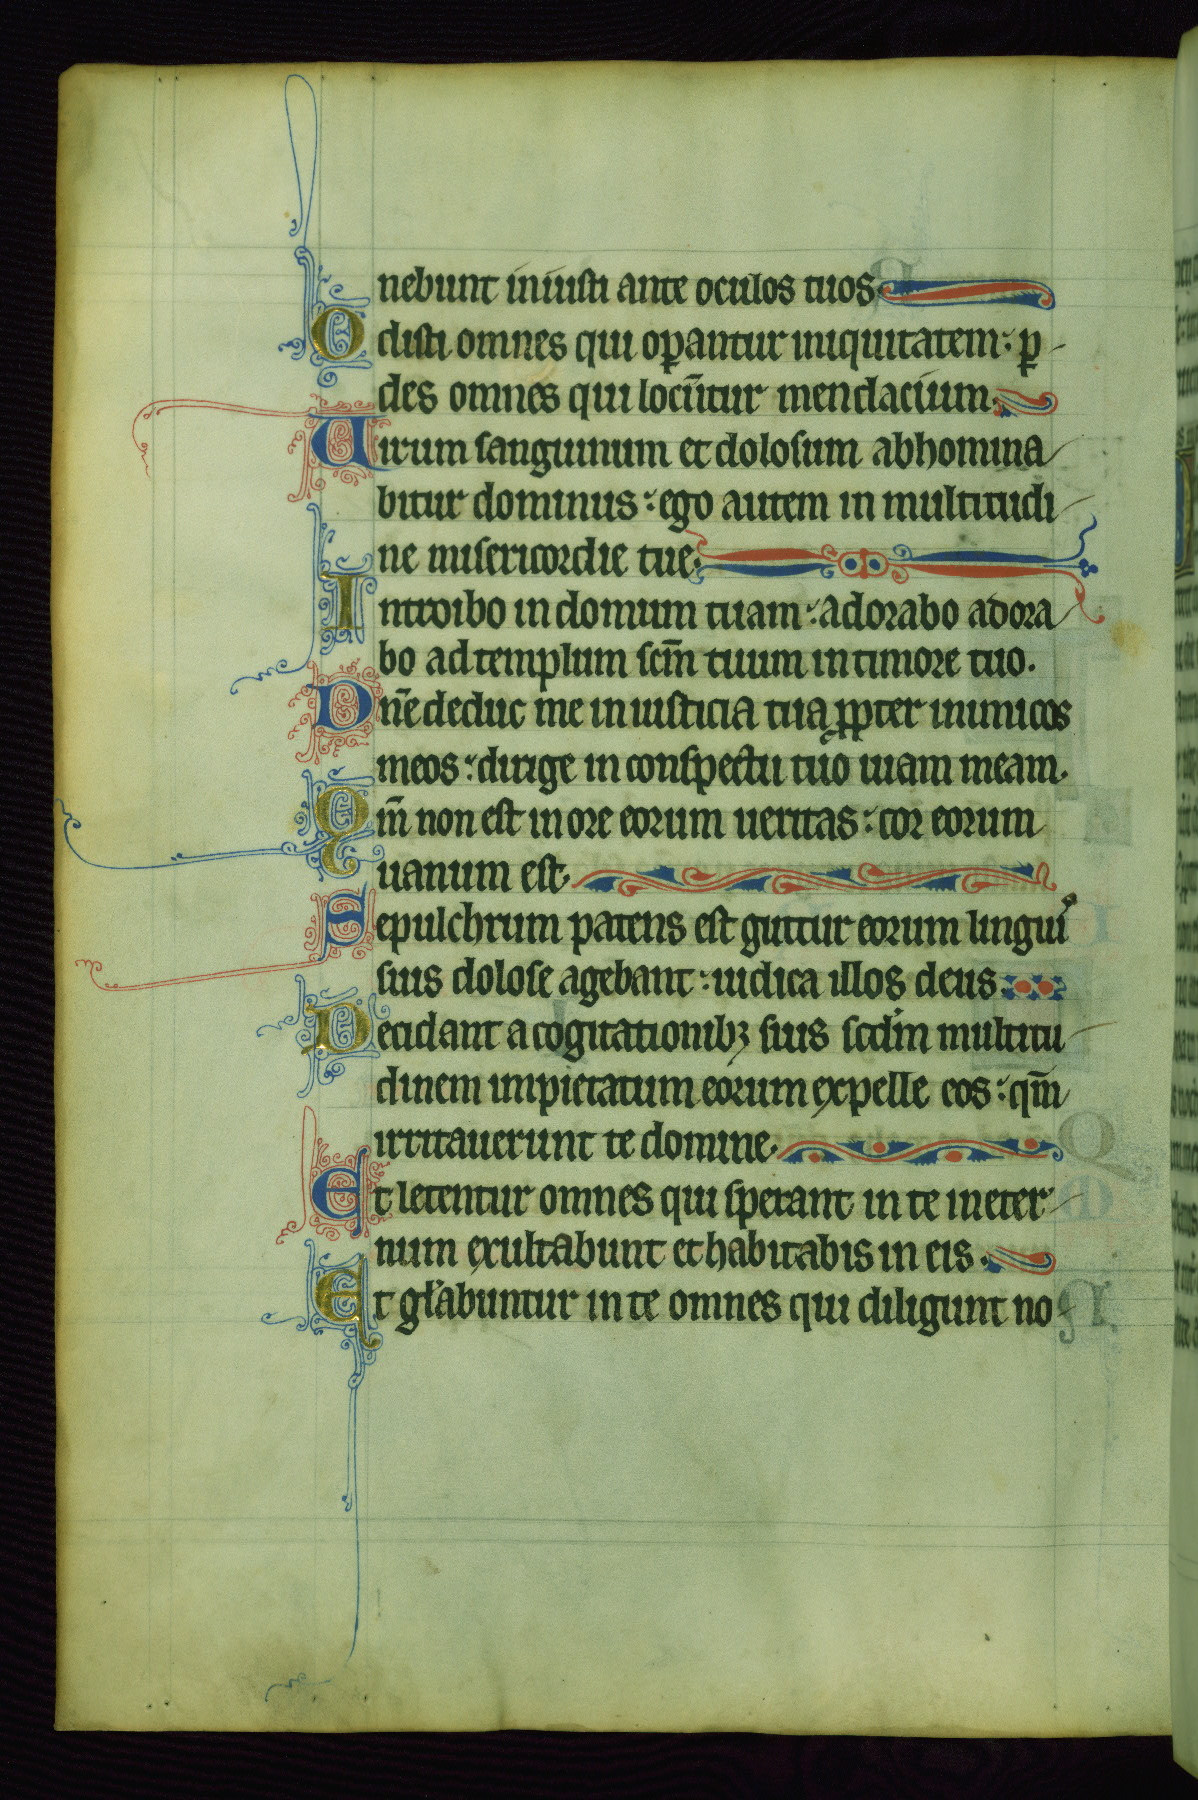 nebunt iniusti ante oculos tuos
Odisti omnes qui oꝑantur iniquitatem: ꝑ
des omnes qui locūtur mendacium.
Uirum sanguinum et dolosum abhomina
bitur dominus: ego autem in multitudi
ne misericordie tue.
Introibo in domum tuam: adorabo adora
bo ad templum scm̄ tuum in timore tuo.
Dn̄e deduc me in iusticia tua ꝓpter inimicos
meos: dirige in conspectu tuo uiam meam.
Qm̄ non est in ore eorum ueritas: cor eorum
uanum est.
Sepulchrum patens est guttur eorum linguis
suis dolose agebant: iudica illos deus
Decidant a cogitationibꝫ suis scd̓m multitu
dinem impietatum eorum expelle eos: qm̄
irritauerunt te domine.
Et letentur omnes qui sperant in te in eter
num exultabunt et habitabis in eis.
Et gl̓abuntur in te omnes qui diligunt no